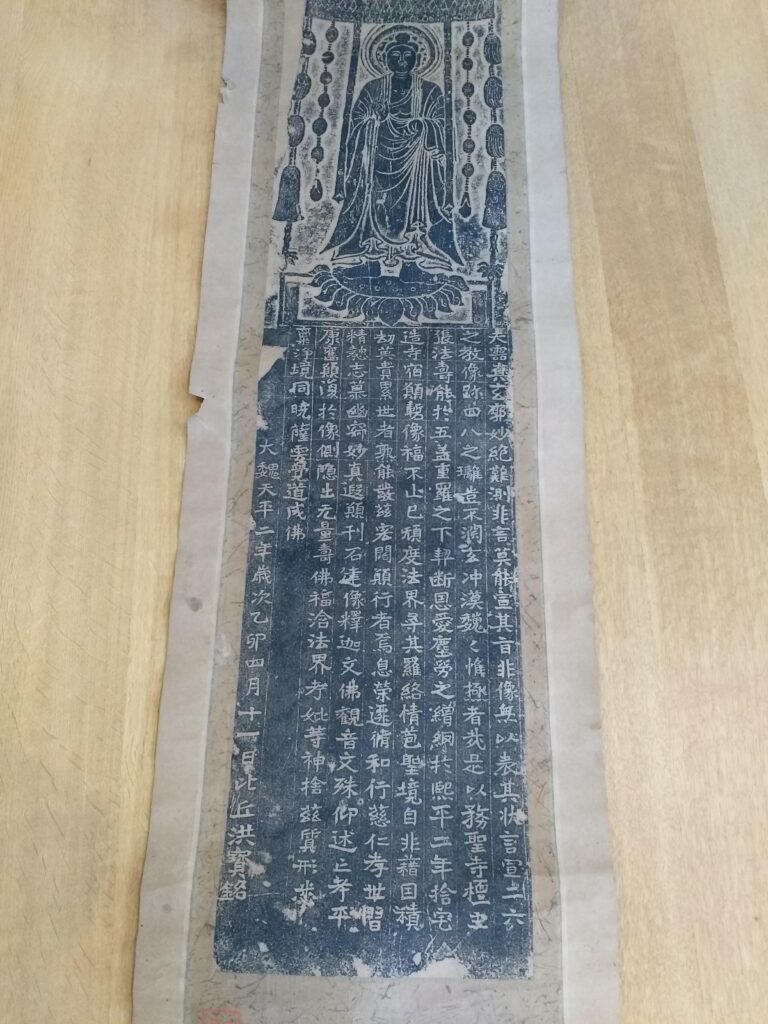 夫靈真玄廓妙絕難測非言莫能宣其旨非像無以表其狀言宣二六
之教像跡四八之瓘豈不淵玄沖漠巍〻惟極者哉是以務聖寺檀主
張法壽能於五蓋重羅之下契斷恩愛塵勞之繒網於熙平二年捨宅
造寺宿願暫像福不止已願度法界尋其羅絡情苞聖境自非藉因積
劫莫貴累世者孰能發茲宏闊願行者焉息榮遷脩和行慈仁孝世習
精懃志慕幽寂妙真遐願刊石建像釋迦文佛觀音文殊仰述亡考平
康舊願復於像側隱出无量壽佛福洽法界考妣等神捨茲質形
淨境同曉薩雲覺道成佛
大魏天平二年歲次乙卯四月十一日比丘洪寶銘